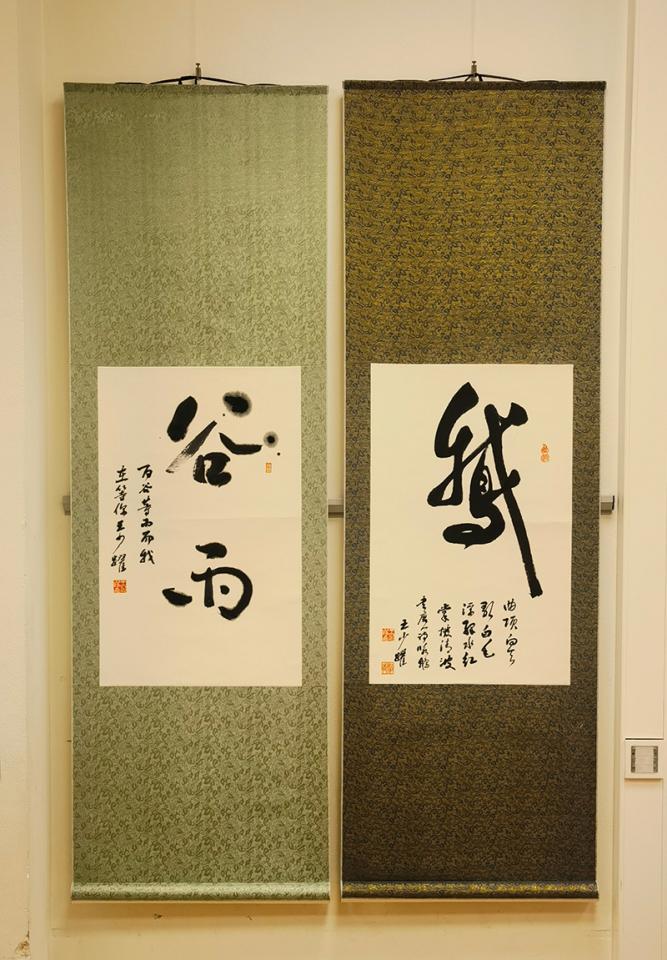 谷雨
百谷等雨而我
在等你王少躍
鵝
曲项向天
歌白毛
浮绿水红
掌拨清波
书唐人诗咏鹅
王少躍